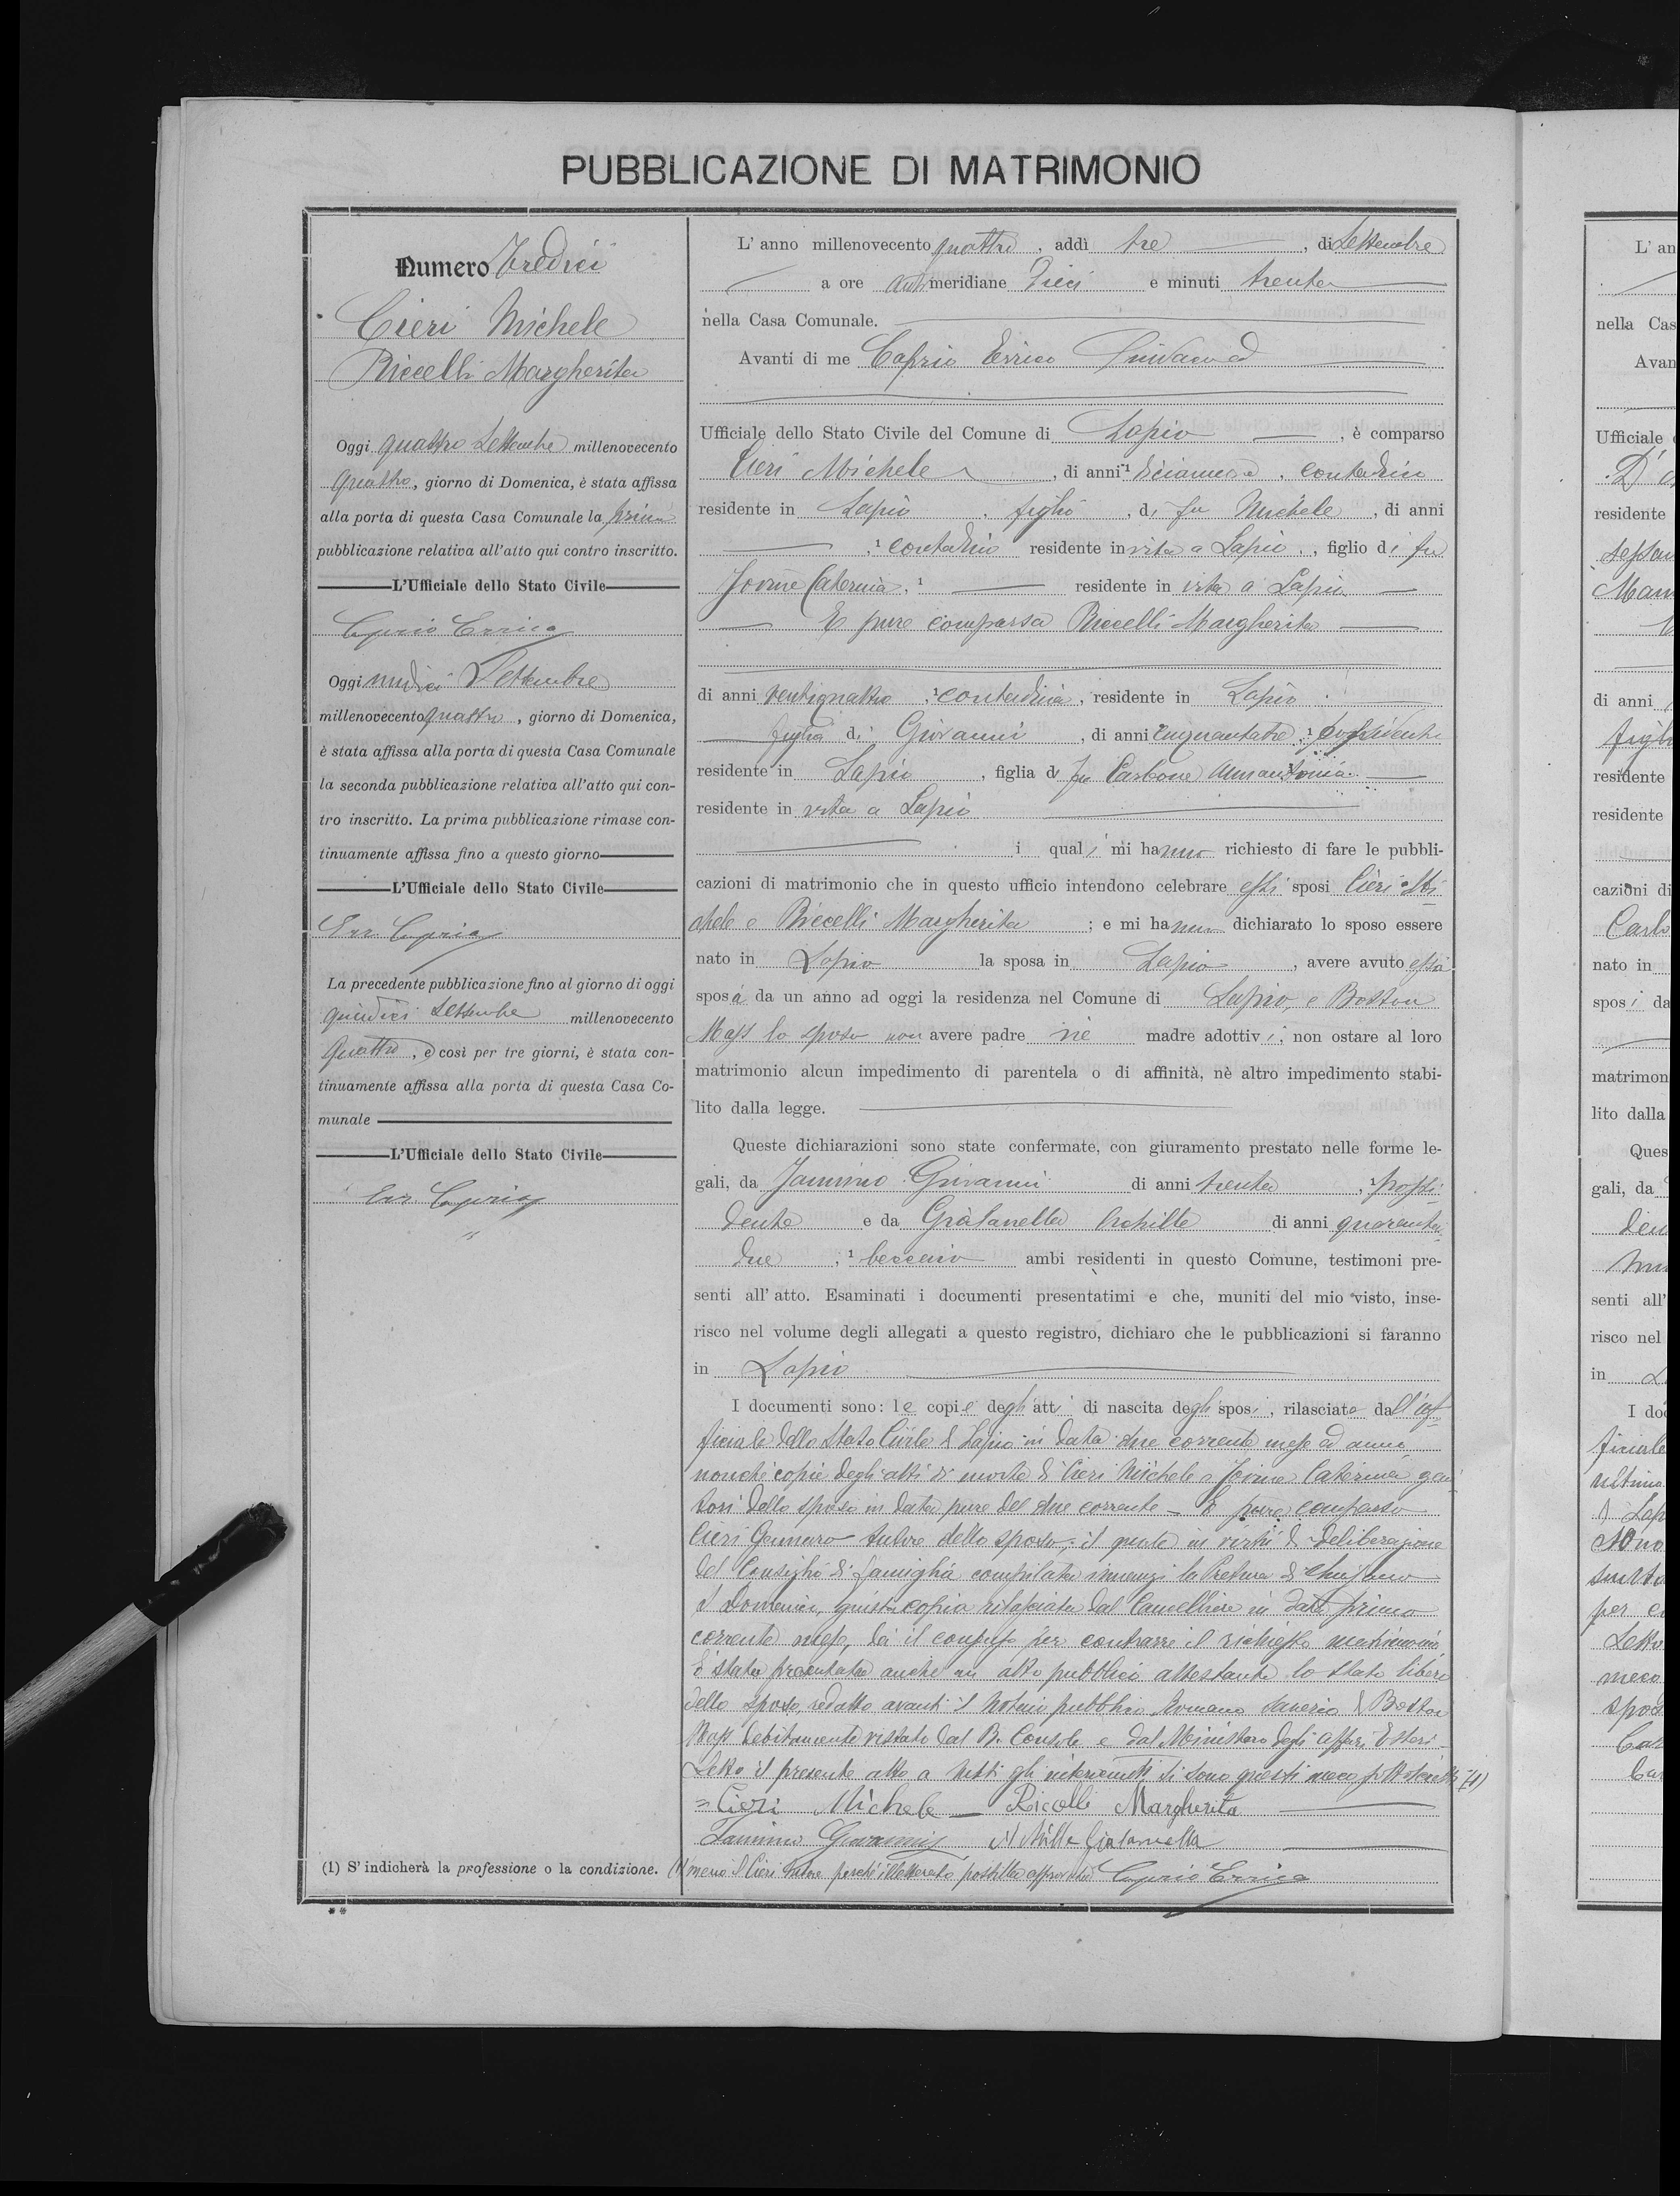 PUBBLICAZIONE DI MATRIMONIO
Numero Tredici
Cieri Michele
Riccelli Margherita
Oggi quattro Settembre millenovecento
quattro, giorno di Domenica, è stata affissa
alla porta di questa Casa Comunale la prima
pubblicazione relativa all'atto qui contro inscritto.
L'Ufficiale dello Stato Civile
Caprio Errico
Oggi undici Settembre
millenovecento quattro, giorno di Domenica,
è stata affissa alla porta di questa Casa Comunale
la seconda pubblicazione relativa all'atto qui con-
tro inscritto. La prima pubblicazione rimase con-
tinuamente affissa fino a questo giorno
L'Ufficiale dello Stato Civile
Err Caprio
La precedente pubblicazione fino al giorno di oggi
quindici Settembre millenovecento
quattro, e così per tre giorni, è stata con-
tinuamente affissa alla porta di questa Casa Co-
munale
L'Ufficiale dello Stato Civile
Err Caprio
L'anno millenovecento quattro, addì tre, di Settembre
a ore antimeridiane dieci e minuti trenta
nella Casa Comunale.
Avanti di me Caprio Errico Sindaco ed
Ufficiale dello Stato Civile del Comune di Lapio, è comparso
Cieri Michele, di anni 1 diciannove, contadino
residente in Lapio, figlio, di fu Michele, di anni
, 1 contadino residente in vita a Lapio, figlio di fu
Iovine Caterina, 1 residente in vita a Lapio
E pure comparsa Riccelli Margherita
di anni ventiquattro, 1 contadina, residente in Lapio
figlia di Giovanni, di anni cinquantatre, 1 possidente
residente in Lapio, figlia di fu Carbone Annantonia
residente in vita a Lapio
i quali mi hanno richiesto di fare le pubbli-
cazioni di matrimonio che in questo ufficio intendono celebrare essi sposi Cieri Mi-
chele e Riccelli Margherita; e mi hanno dichiarato lo sposo essere
nato in Lapio la sposa in Lapio, avere avuto essa
sposa da un anno ad oggi la residenza nel Comune di Lapio, e Boston
Mass lo sposo non avere padre nè madre adottivi; non ostare al loro
matrimonio alcun impedimento di parentela o di affinità, nè altro impedimento stabi-
lito dalla legge.
Queste dichiarazioni sono state confermate, con giuramento prestato nelle forme le-
gali, da Iannino Giovanni di anni trenta, 1 possi
dente e da Gialanella Achille di anni quaranta
due, 1 beccaio ambi residenti in questo Comune, testimoni pre-
senti all'atto. Esaminati i documenti presentatimi e che, muniti del mio visto, inse-
risco nel volume degli allegati a questo registro, dichiaro che le pubblicazioni si faranno
in Lapio
I documenti sono: le copie degli atti di nascita degli sposi, rilasciate dall'uf-
ficiale dello Stato Civile di Lapio in data due corrente mese ed anno
nonchè copie degli atti di morte di Cieri Michele e Iovine Caterina geni
tori dello sposo in data pure del due corrente - E pure comparso
Cieri Gennaro tutore dello sposo, il quale in virtù di deliberazione
del Consiglio di famiglia compilata innanzi la Pretura di Chiusano
S Domenico, giusta copia rilasciata dal Cancelliere in data primo
corrente mese, dà il consenso per contrarre il richiesto matrimonio
È stata presentata anche un atto pubblico attestante lo stato libero
dello sposo, redatto avanti il Notaio pubblico Romano Saverio di Boston
Mass debitamente vistato dal R. Console e dal Ministero degli Affari Esteri-
Letto il presente atto a tutti gli intervenuti si sono questi meco sottoscritti (1)
= Cieri Michele - Ricelli Margherita
Iannino Giovanni Achille Gialanella
(1) meno il Cieri tutore perchè illetterato postilla approvata Caprio Errico
(1) S'indicherà la professione o la condizione.
**
L'an
nella Cas
Avan
Ufficiale
residente
Mam
di anni
figli
residente
residente
cazioni di
Carb
nato in
sposi da
matrimon
lito dalla
Ques
gali, da
den
senti all'
risco nel
in L
I doc
ficiale
per c
meco
spos
Car